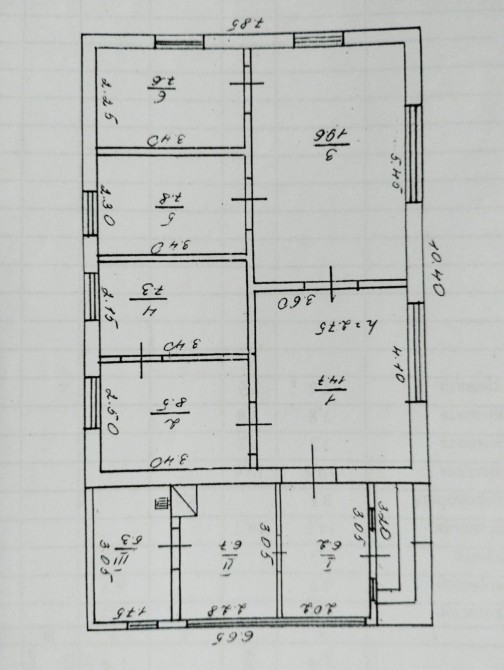 6.65
2.02
2.28
1.75
3.20
3.05
I
6.2
3.05
II
6.7
III
5.3
3.05
3.40
2
8.5
2.50
1
14.7
4.10
h=2.75
3.40
4
7.3
2.15
3.60
10.40
3.40
5
7.8
2.30
5.45
3
19.6
3.40
6
7.6
2.25
7.85